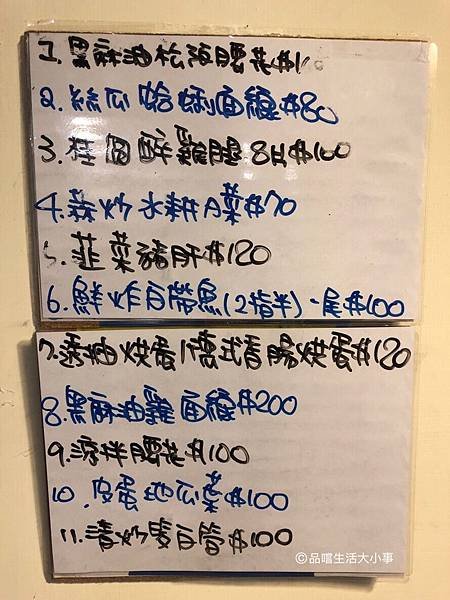 1. 黑麻油松阪腰花$1
2. 絲瓜蛤蜊面線$80
3. 桂圓醉雞腿 8片$100
4. 蒜炒水耕A菜$70
5. 韮菜豬肝$120
6. 鮮炸白帶魚(2指半)一尾$100
7. 透抽烘蛋/德式香腸烘蛋$120
8. 黑麻油雞面線$200
9. 涼拌腰花$100
10. 皮蛋地瓜葉$100
11. 清炒茭白筍$100
©品嚐生活大小事